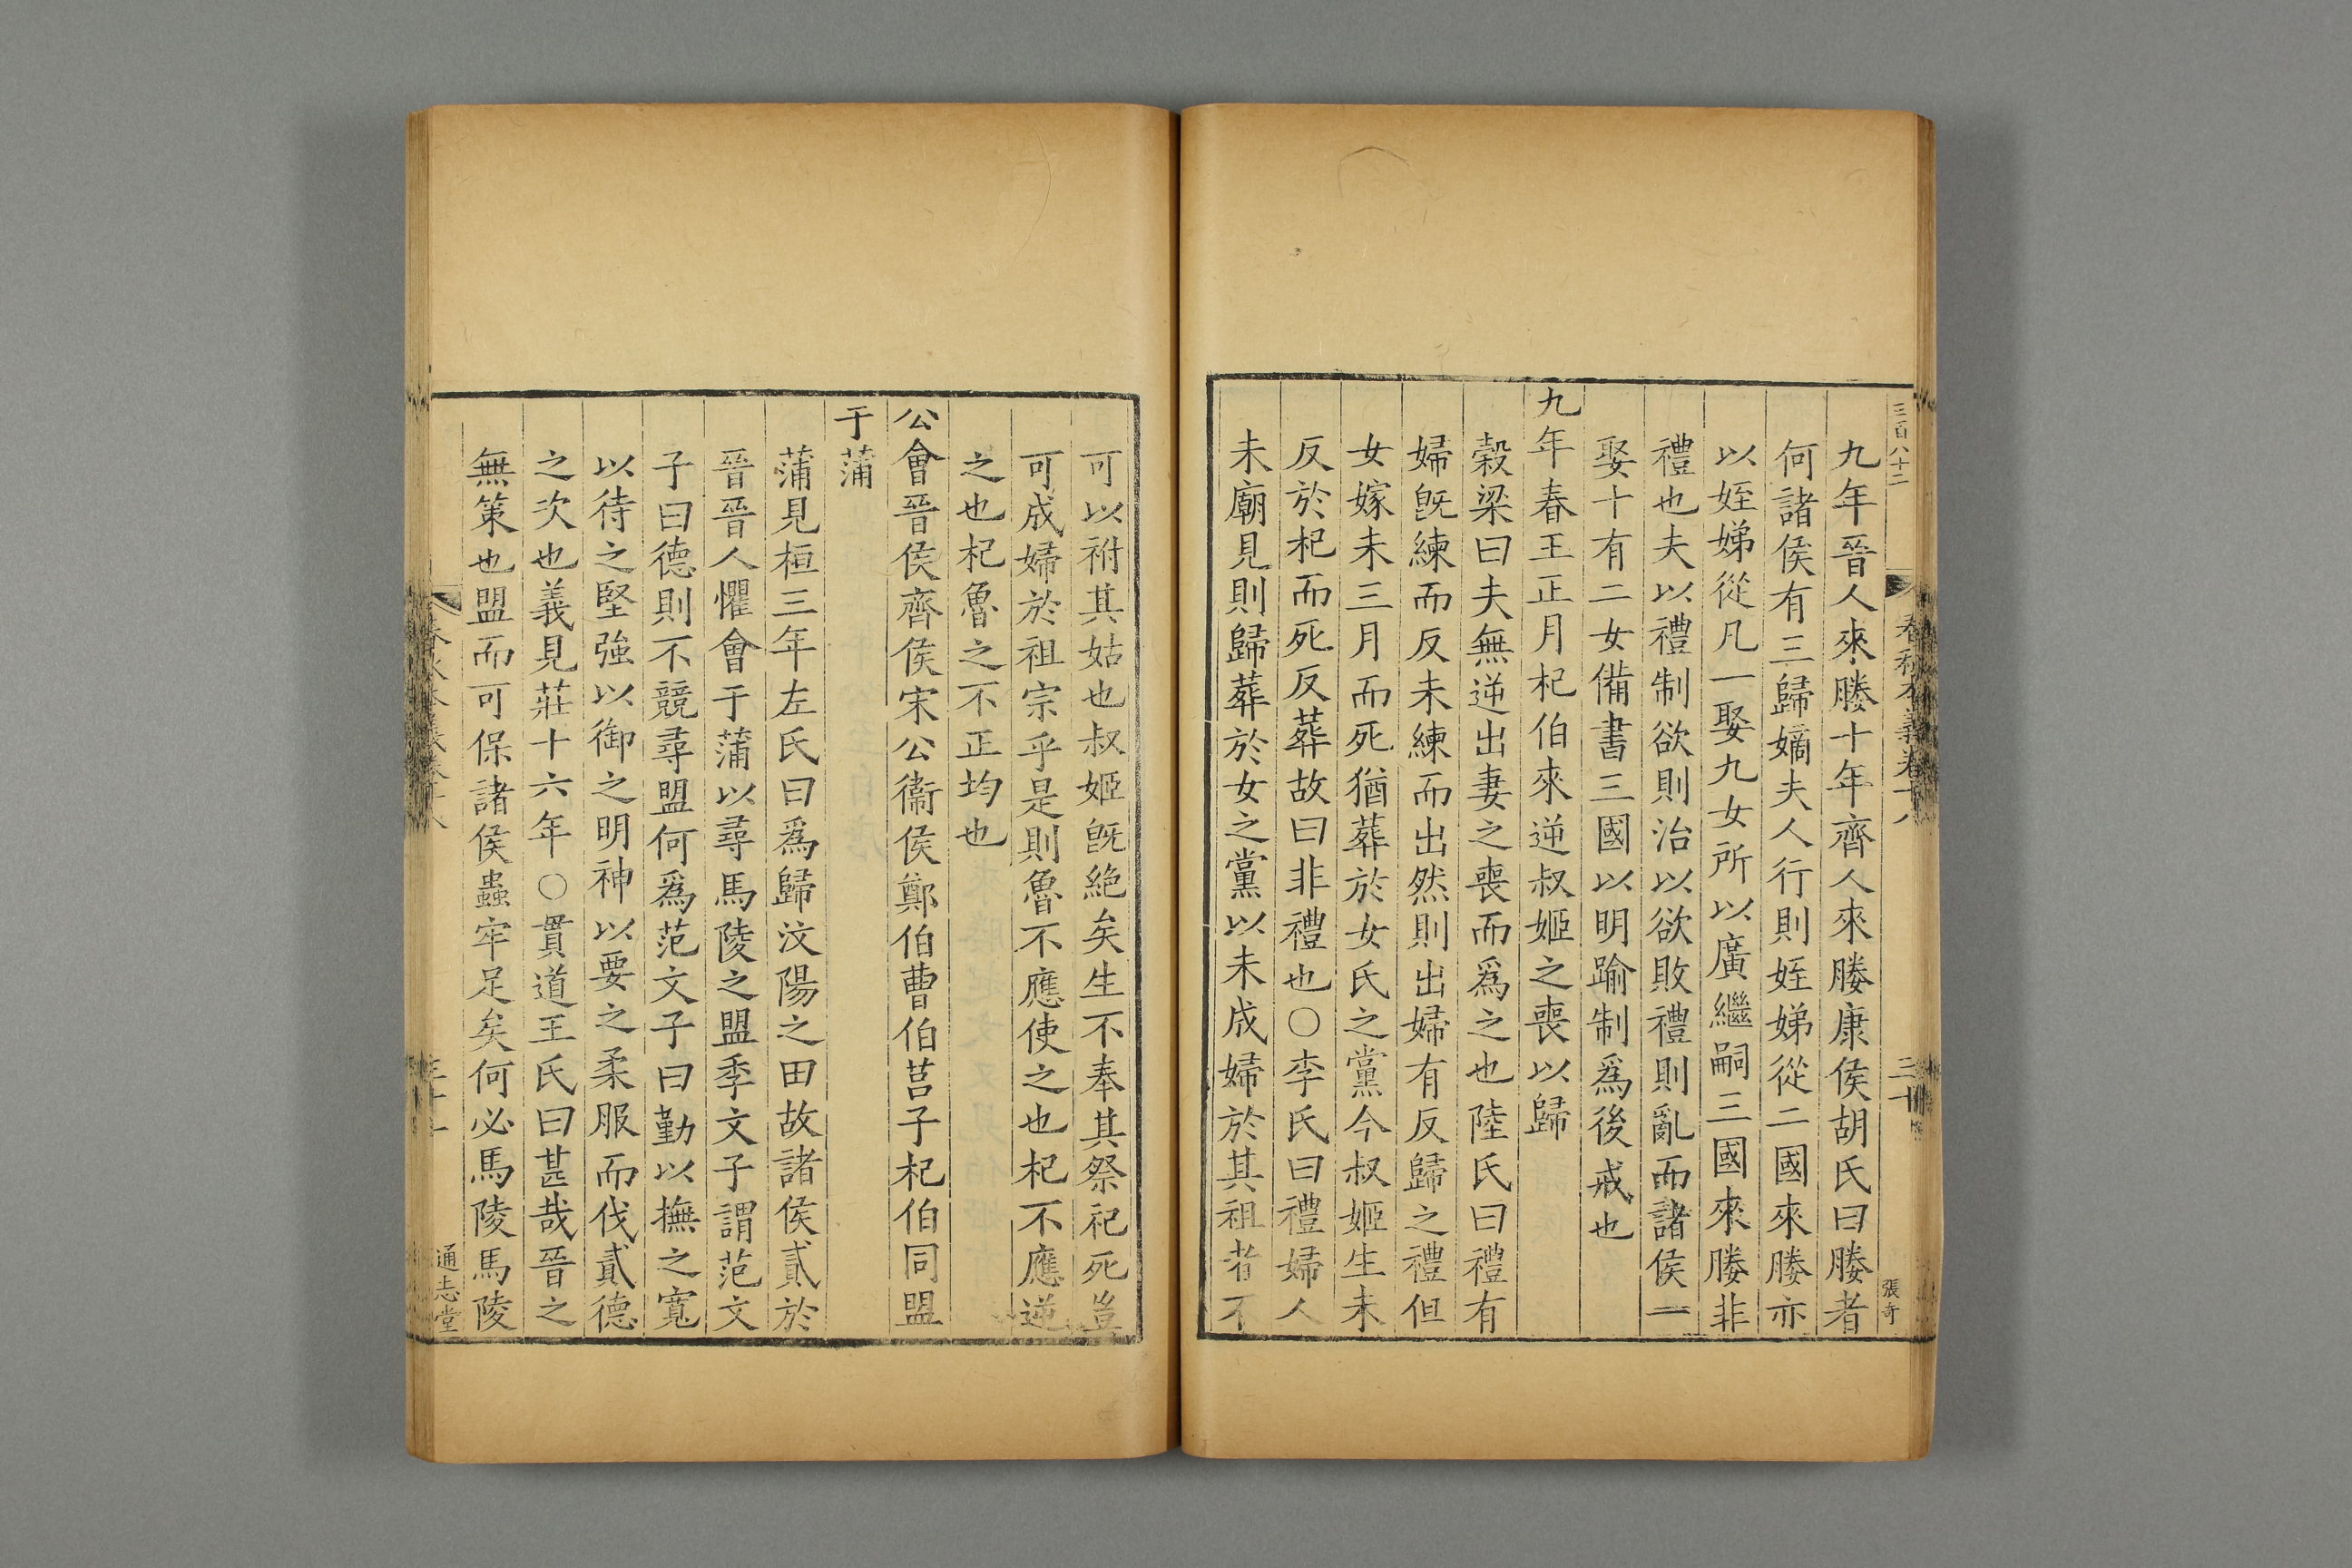 三百八十二
春秋本義卷十八
三十
張奇
九年晉人來媵十年齊人來媵康侯胡氏曰媵者
何諸侯有三歸嫡夫人行則姪娣從二國來媵亦
以姪娣從凡一娶九女所以廣繼嗣三國來媵非
禮也夫以禮制欲則治以欲敗禮則亂而諸侯一
娶十有二女備書三國以明踰制爲後戒也
九年春王正月杞伯來逆叔姬之喪以歸
穀梁曰夫無逆出妻之喪而爲之也陸氏曰禮有
婦旣練而反未練而出然則出婦有反歸之禮但
女嫁未三月而死猶葬於女氏之黨今叔姬生未
反於杞而死反葬故曰非禮也○李氏曰禮婦人
未廟見則歸葬於女之黨以未成婦於其祖者不
可以祔其姑也叔姬旣絶矣生不奉其祭祀死豈
可成婦於祖宗乎是則魯不應使之也杞不應逆
之也杞魯之不正均也
公會晉侯齊侯宋公衞侯鄭伯曹伯莒子杞伯同盟
于蒲
蒲見桓三年左氏曰爲歸汶陽之田故諸侯貳於
晉晉人懼會于蒲以尋馬陵之盟季文子謂范文
子曰德則不競尋盟何爲范文子曰勤以撫之寬
以待之堅強以御之明神以要之柔服而伐貳德
之次也義見莊十六年○貫道王氏曰甚哉晉之
無策也盟而可保諸侯蟲牢足矣何必馬陵馬陵
通志堂